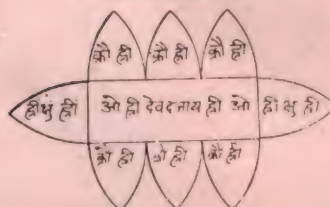 क्रौ ह्री क्रौ ह्री क्रौ ह्री
ह्री क्षुं ह्री ओ ह्री देवदत्ताय ह्री ओ ह्री क्षु ह्री
क्रौ ह्री क्रौ ह्री क्रौ ह्री